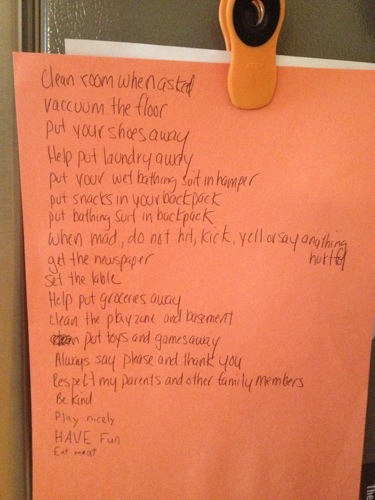 Clean room when asked
vaccuum the floor
put your shoes away
Help put laundry away
put your wet bathing suit in hamper
put snacks in your backpack
put bathing suit in backpack
when mad, do not hit, kick, yell or say anything
hurtful
get the newspaper
set the table
Help put groceries away
clean the playzone and basement
put toys and games away
Always say please and thank you
Respect my parents and other family members
Be kind
Play nicely
HAVE Fun
Eat meat